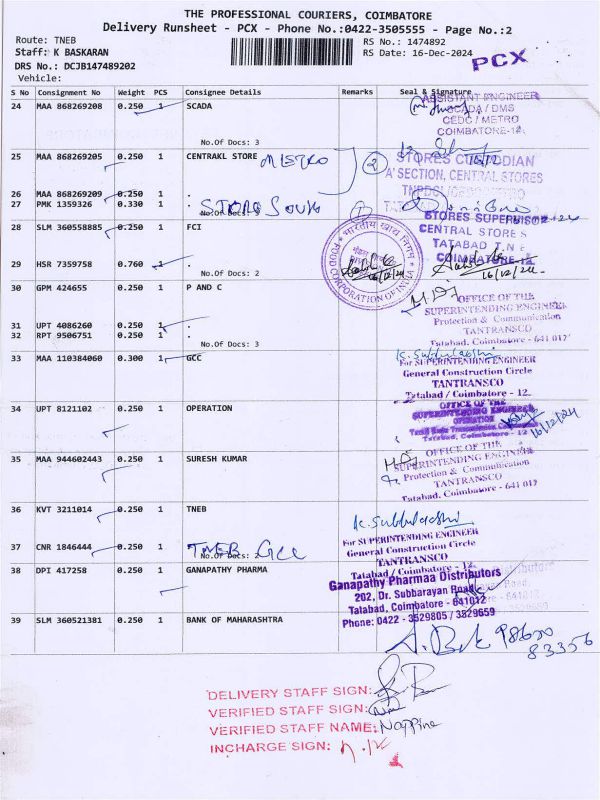 THE PROFESSIONAL COURIERS, COIMBATORE
Delivery Runsheet - PCX - Phone No.:0422-3505555 - Page No.:2
Route: TNEB
RS No.: 1474892
Staff: K BASKARAN
RS Date: 16-Dec-2024
PCX
DRS No.: DCJB147489202
Vehicle:
S No Consignment No Weight PCS Consignee Details Remarks Seal & Signature
24 MAA 868269208 0.250 1 SCADA
ASSISTANT ENGINEER
SCADA / DMS
CEDC / METRO
COIMBATORE-12.
No.Of Docs: 3
25 MAA 868269205 0.250 1 CENTRAKL STORE METRO 2
STORES CUSTODIAN
'A' SECTION, CENTRAL STORES
26 MAA 868269209 0.250 1 .
27 PMK 1359326 0.330 1 . STORE South
No.Of Docs: 3
STORES SUPERVISOR
CENTRAL STORES
TATABAD T.N.E
COIMBATORE-12
28 SLM 360558885 0.250 1 FCI
भारतीय खाद्य निगम
FOOD CORPORATION OF INDIA
16/12/24
16/12/24
29 HSR 7359758 0.760 1 .
No.Of Docs: 2
30 GPM 424655 0.250 1 P AND C
OFFICE OF THE
SUPERINTENDING ENGINEER
Protection & Communication
TANTRANSCO
Tatabad, Coimbatore - 641 012
31 UPT 4086260 0.250 1 .
32 RPT 9506751 0.250 1 .
No.Of Docs: 3
33 MAA 110384060 0.300 1 GCC
K. Subbulakshmi
For SUPERINTENDING ENGINEER
General Construction Circle
TANTRANSCO
Tatabad / Coimbatore - 12.
34 UPT 8121102 0.250 1 OPERATION
OFFICE OF THE
SUPERINTENDING ENGINEER
OPERATION
Tatabad, Coimbatore - 12
16/12/24
35 MAA 944602443 0.250 1 SURESH KUMAR
OFFICE OF THE
SUPERINTENDING ENGINEER
Protection & Communication
TANTRANSCO
Tatabad, Coimbatore - 641 012
36 KVT 3211014 0.250 1 TNEB
K. Subbulakshmi
For SUPERINTENDING ENGINEER
General Construction Circle
TANTRANSCO
Tatabad / Coimbatore - 12.
37 CNR 1846444 0.250 1 TNEB GCC
No.Of Docs: 2
38 DPI 417258 0.250 1 GANAPATHY PHARMA
Ganapathy Pharmaa Distributors
202, Dr. Subbarayan Road,
Tatabad, Coimbatore - 641012
Phone: 0422 - 3529805 / 3529659
39 SLM 360521381 0.250 1 BANK OF MAHARASHTRA
98650
83356
DELIVERY STAFF SIGN:
VERIFIED STAFF SIGN:
VERIFIED STAFF NAME:
INCHARGE SIGN: